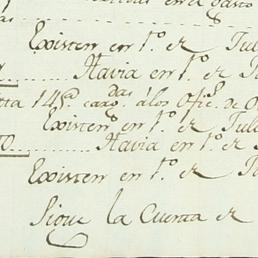 en el Gasto
as
Existen en 1.º de Jul
Havia en 1.º de J
tta 145,, carg.das á los Ofic.s de O
Existen en 1.º de Jul
TO Havia en 1.º de
Existen en 1.º de J
Sigue la Cuenta de